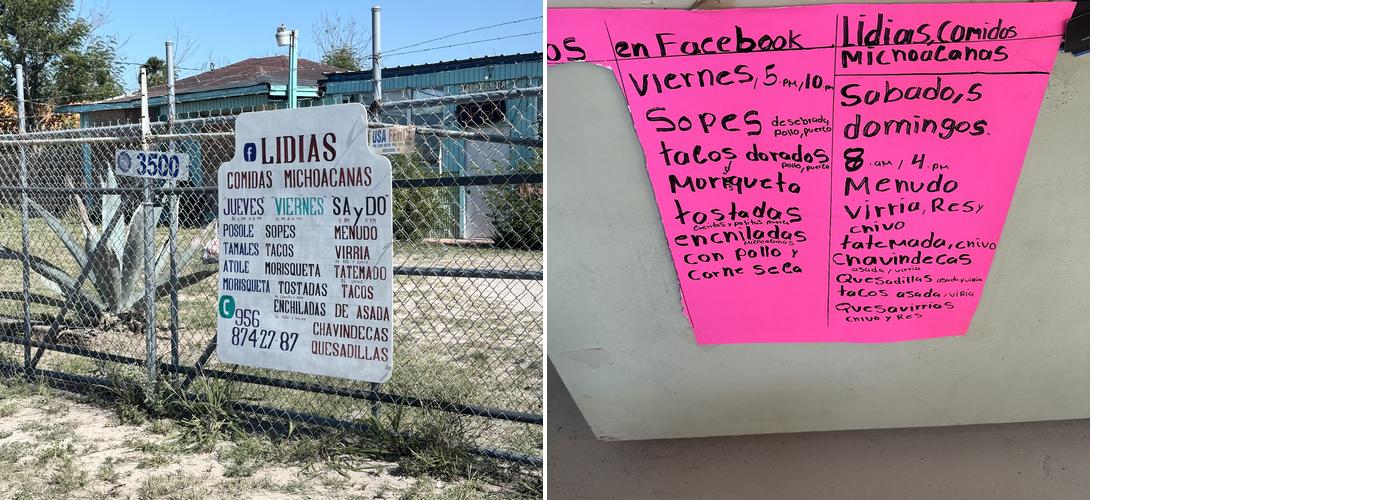 3500
USA FENCE
LIDIAS
COMIDAS MICHOACANAS
JUEVES VIERNES SA y DO
POSOLE SOPES MENUDO
TAMALES TACOS VIRRIA
ATOLE MORISQUETA TATEMADO
MORISQUETA TOSTADAS TACOS
ENCHILADAS DE ASADA
956 CHAVINDECAS
874-27-87 QUESADILLAS
os en Facebook
Viernes, 5 PM, 10
Sopes desebrada
pollo, puerco
tacos dorados
pollo, puerco
y
Morisqueta
tostadas
Cueritos y patitas puerco
enchiladas
Michoacanas
con pollo y
Carne seca
Lidias, Comidas
Michoacanas
Sabado, s
domingos.
8 AM / 4 PM
Menudo
Virria, Res y
chivo
tatemada, chivo
Chavindecas
asada / virria
Quesadillas asada y viria
tacos asada / viria
Quesavirrias
chivo y Res